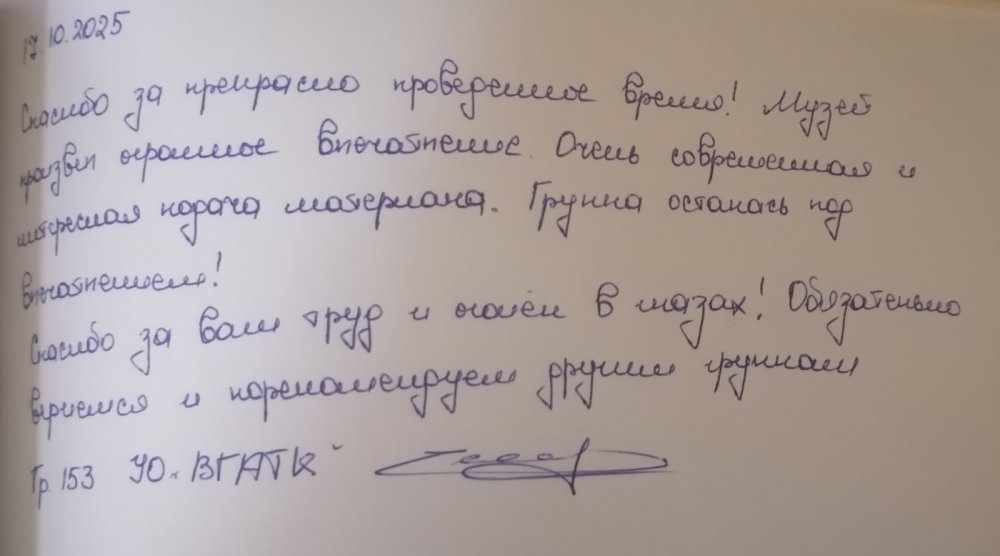 17.10.2025
Спасибо за прекрасно проведенное время! Музей
произвел огромное впечатление. Очень современная и
интересная подача материала. Группа осталась под
впечатлением!
Спасибо за ваш труд и огонь в глазах! Обязательно
вернемся и порекомендуем другим группам
Гр. 153 УО "ВГАТК"